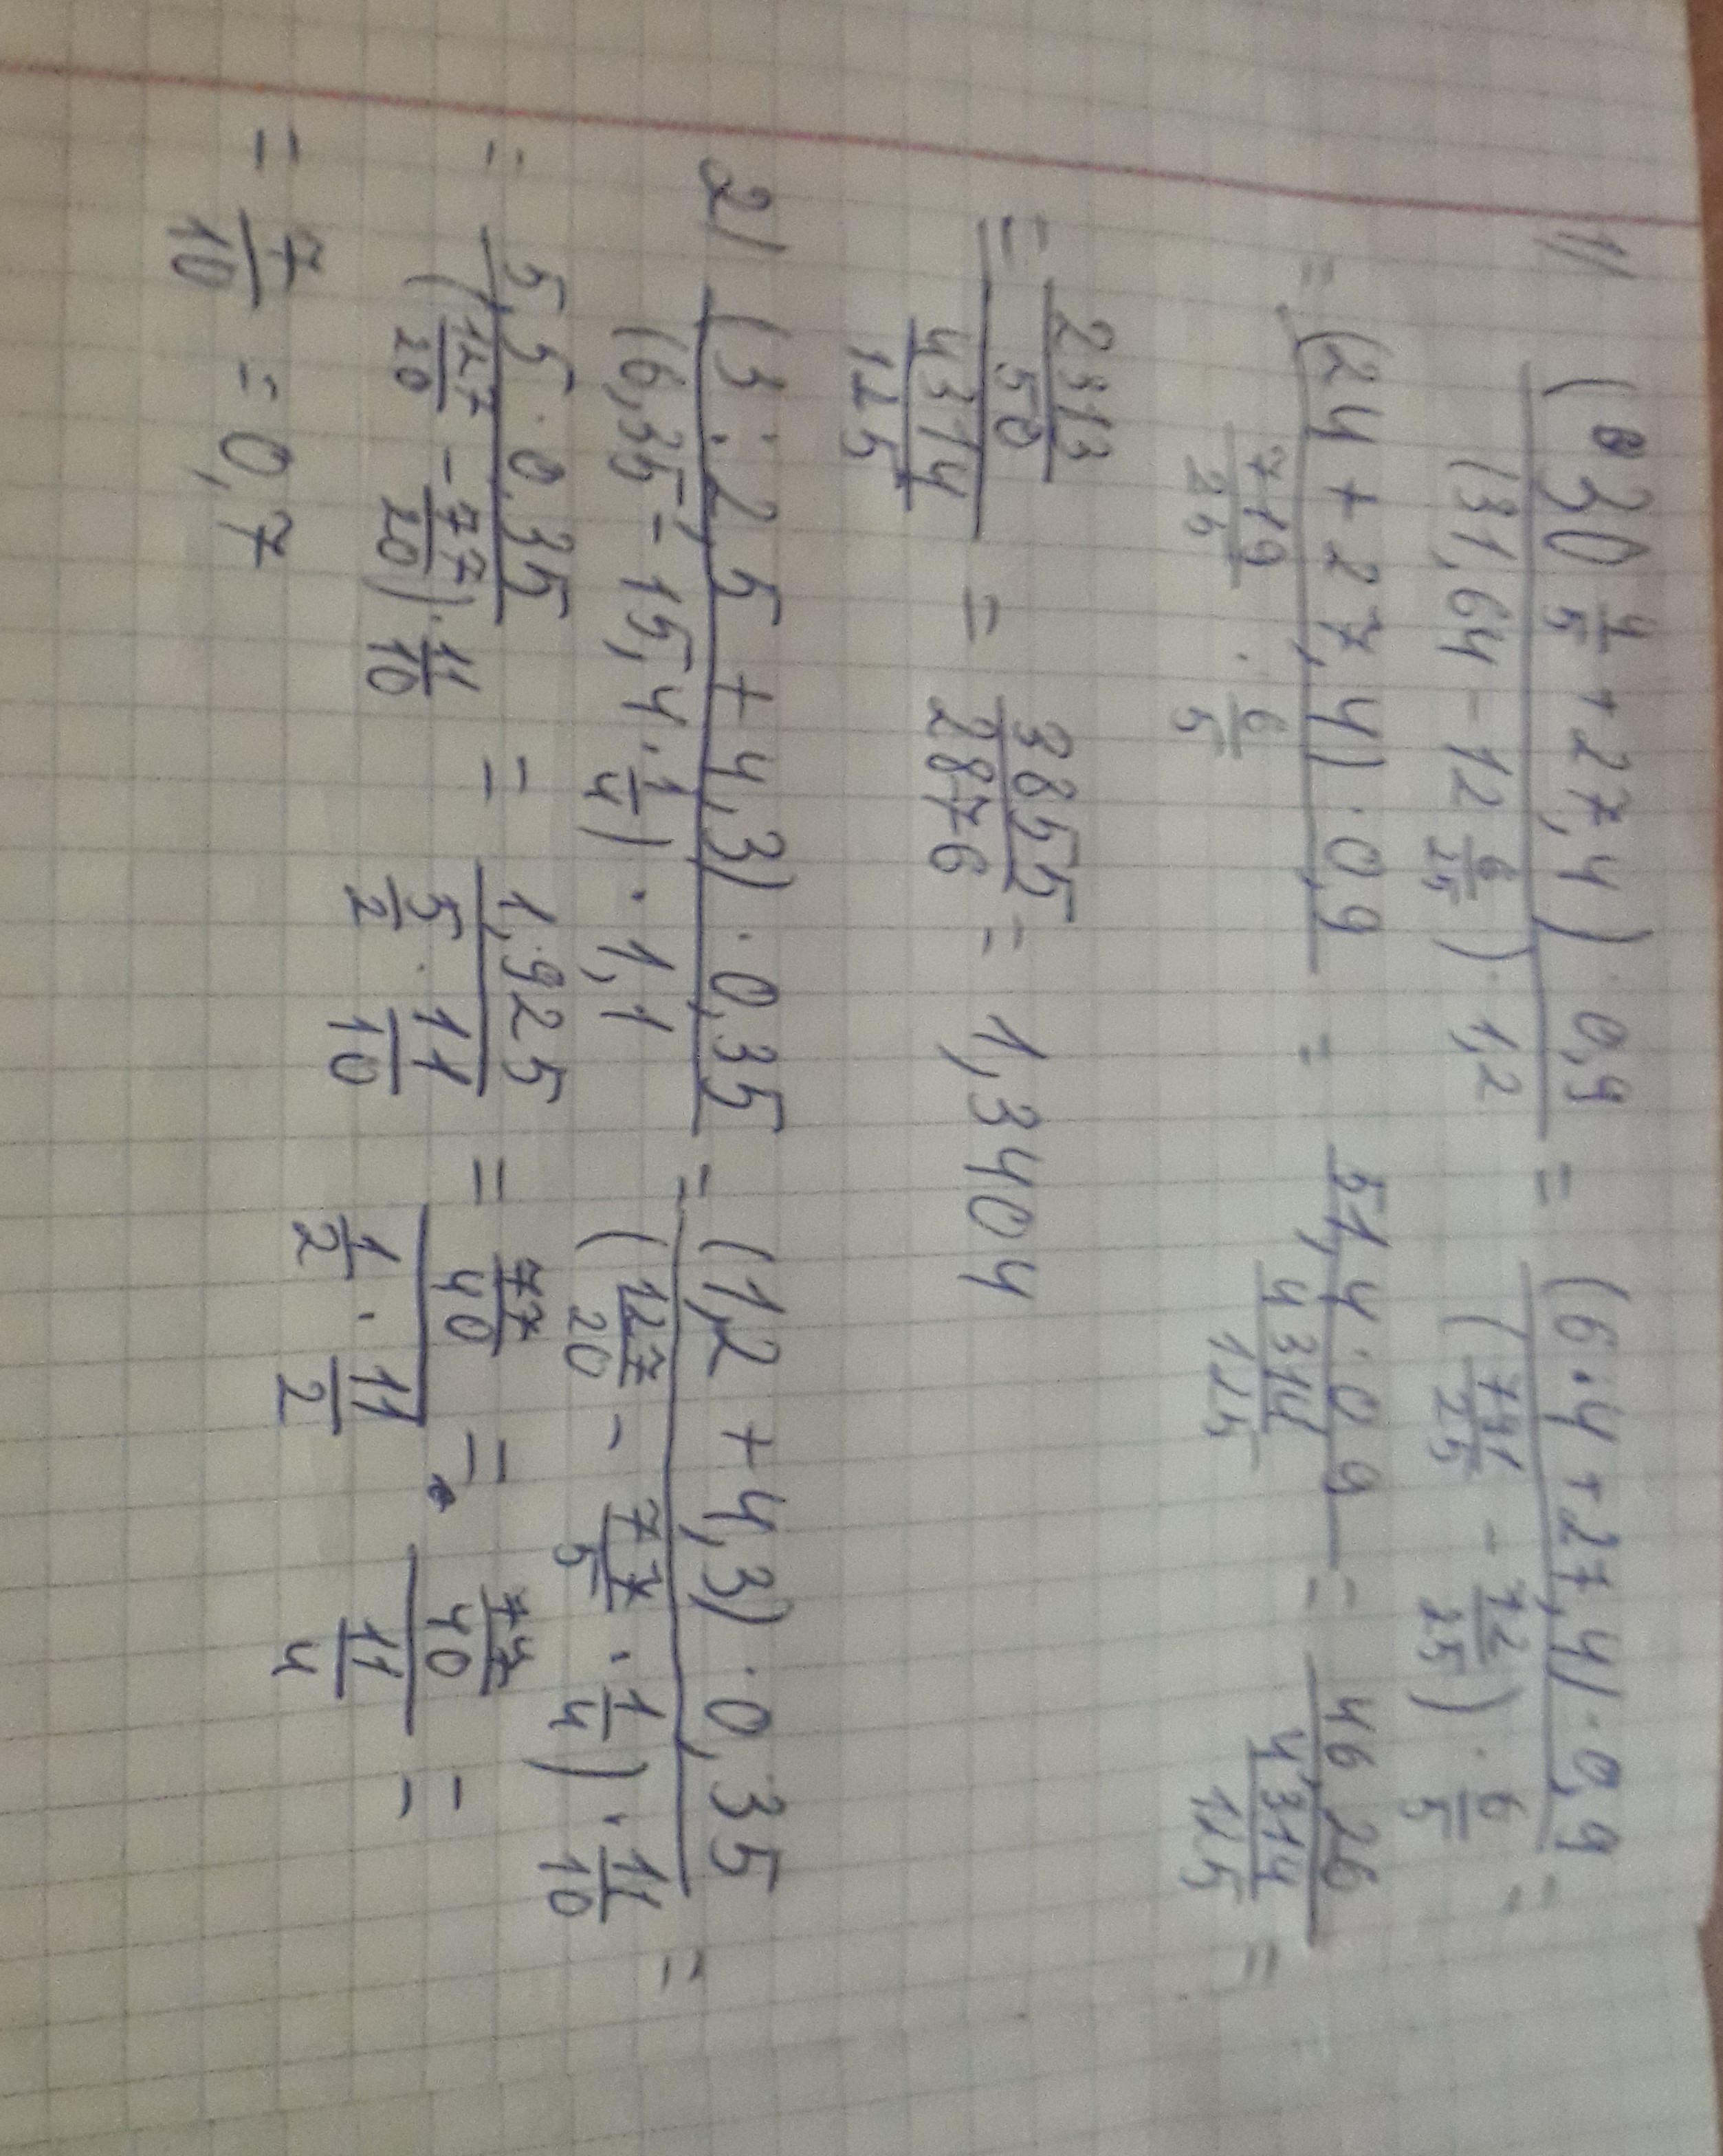 1) (30 4/5 + 27,4) · 0,9 / (31,64 - 12 6/25) · 1,2 = (6·4 + 27,4) · 0,9 / (791/25 - 72/25) · 6/5 =
= (24 + 27,4) · 0,9 / 719/25 · 6/5 = 51,4 · 0,9 / 4314/125 = 46,26 / 4314/125 =
= 2313/50 / 4314/125 = 3855/2876 = 1,3404
2) (3 : 2,5 + 4,3) · 0,35 / (6,35 - 15,4 · 1/4) · 1,1 = (1,2 + 4,3) · 0,35 / (127/20 - 77/5 · 1/4) · 11/10 =
= 5,5 · 0,35 / (127/20 - 77/20) · 11/10 = 1,925 / 5/2 · 11/10 = 77/40 / 1/2 · 11/2 = 77/40 / 11/4 =
= 7/10 = 0,7